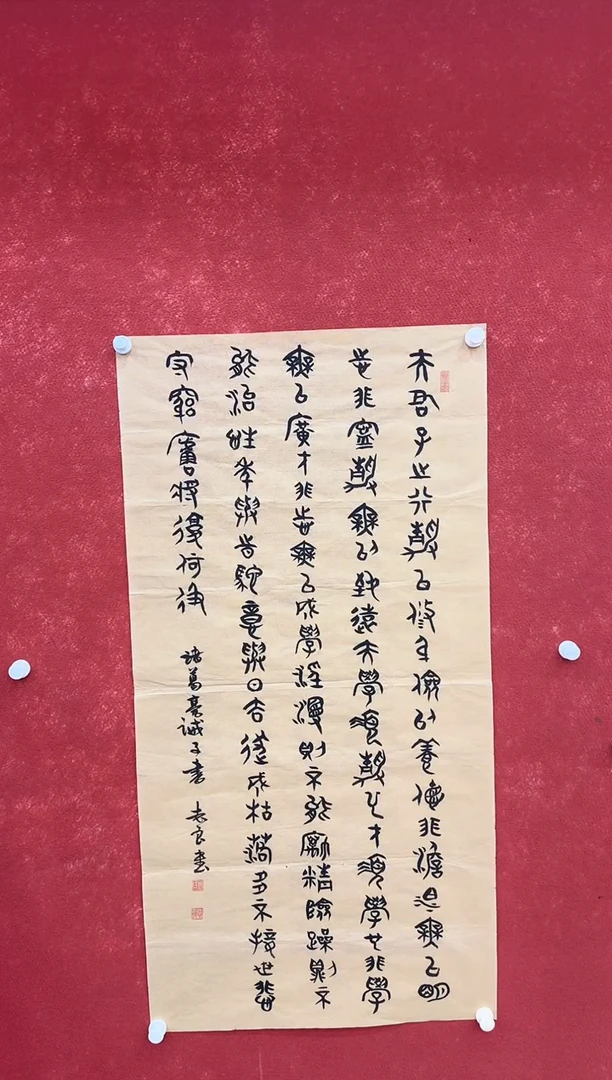 夫君子之行靜以修身儉以養德非澹泊無以明
志非寧靜無以致遠夫學須靜也才須學也非學
無以廣才非志無以成學淫漫則不能勵精險躁則不
能治性年與時馳意與日去遂成枯落多不接世悲
守窮廬將復何及
諸葛亮誡子書 志良書